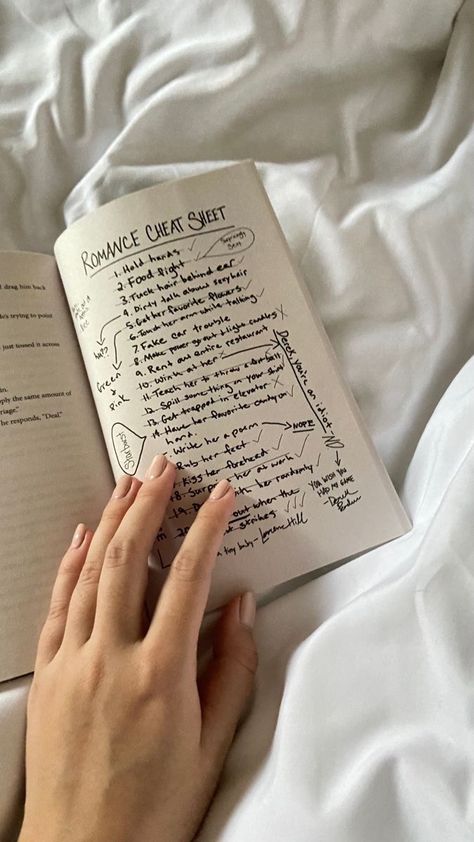 I drag him back
he's trying to point
just tossed it across
in.
pply the same amount of
riage."
he responds, "Deal."
ROMANCE CHEAT SHEET
1. Hold hands ✓
2. Food fight ✓
Surprisingly sexy
3. Tuck hair behind ear ✓
4. Dirty talk about sexy hair
5. Get her favorite flowers ✓
6. Touch her arm while talking ✓
7. Fake car trouble X
8. Make power go out + light candles X
9. Rent out entire restaurant
10. Wink at her X
11. Teach her to throw a football
12. Spill something on your shirt
13. Get trapped in elevator X
14. Have her favorite candy on
hand.
Write her a poem → NOPE
Rub her feet ✓
Kiss her forehead ✓
18. Surprise her at work ✓
19. with her randomly ✓
out when the
strikes ✓✓✓
tiny baby - Hill
Green
Pink
Starburst
Derek, you're an idiot. NO
YOU WISH YOU
HAD MY GAME
- Derek